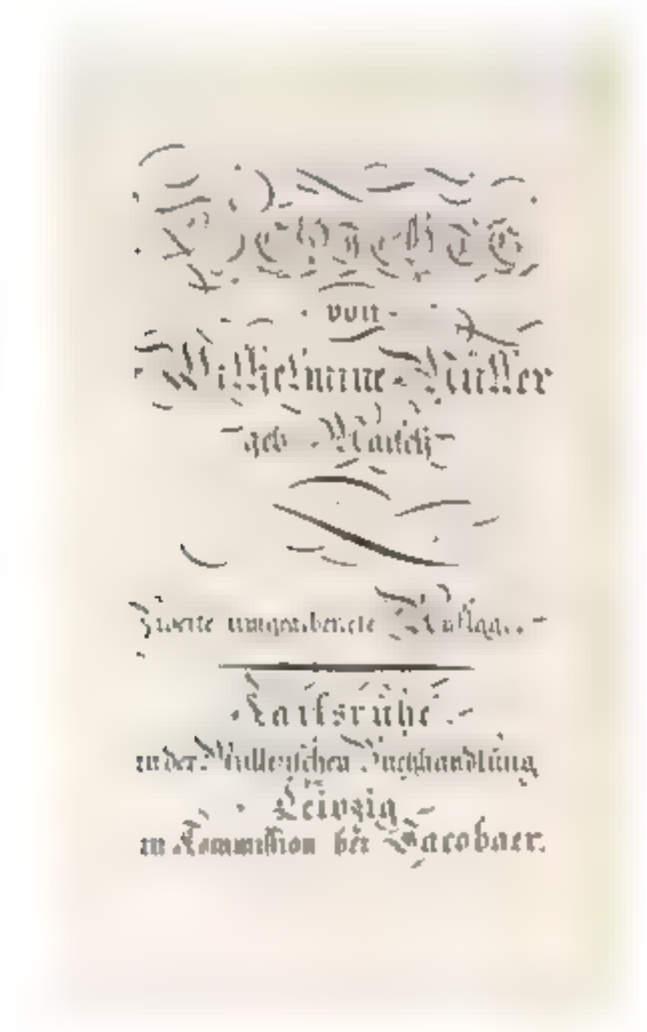 GEDICHTE
von
Wilhelmine Müller
geb. Maisch
Zweite umgearbeitete Auflage.
Karlsruhe
in der Müllerischen Buchhandlung
Leipzig
in Kommission bei Jacobäer.